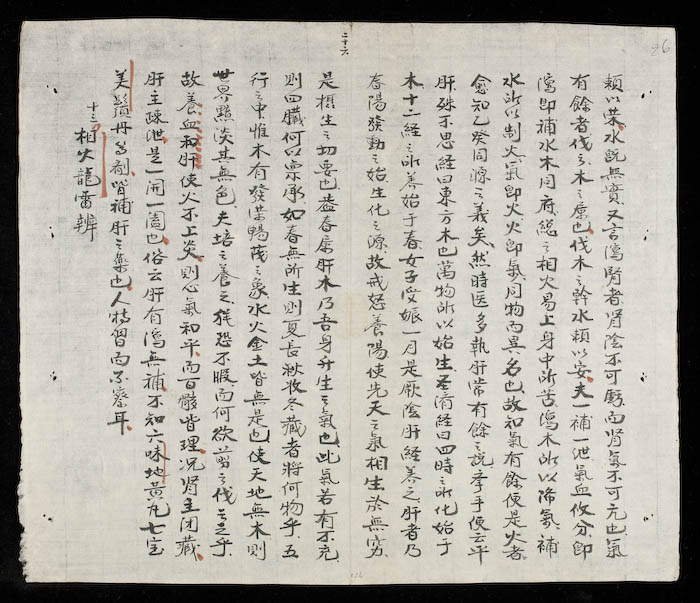 26
二十六
賴以榮水既無實又言瀉腎者肾陰不可虧而肾氣不可亢也氣
有餘者伐之木之屬也伐木之幹水賴以安夫一補一泄氣血攸分即
瀉即補水木同府總之相火易上身中所苦瀉木所以降氣補
水所以制火氣即火火即氣同物而異名也故知氣有餘便是火者
愈知乙癸同源之義矣然時医多執肝常有餘之説举手便云平
肝殊不思經曰東方木也萬物所以始生圣濟經曰四時之所化始于
木十二經之所養始于春女子受娠一月是厥陰肝經養之肝者乃
春陽發動之始生化之源故戒怒養陽使先天之氣相生於無窮
是摂生之切要也益春屬肝木乃吾身升生之氣也此氣若有不充
則四臓何以禀承如春無所生則夏長秋收冬藏者將何物乎五
行之中惟木有發榮暢茂之象水火金土皆無是也使天地無木則
世界黯淡其無色夫培之養之猶恐不暇而何欲剪之伐之乎
故養血和肝使火不上炎則心氣和平而百骸皆理况肾主闭藏
肝主疎泄是一開一闔也俗云肝有瀉無補不知六味地黄丸七宝
美鬚丹等剤皆補肝之藥也人特習而不察耳
十三相火龍雷辨